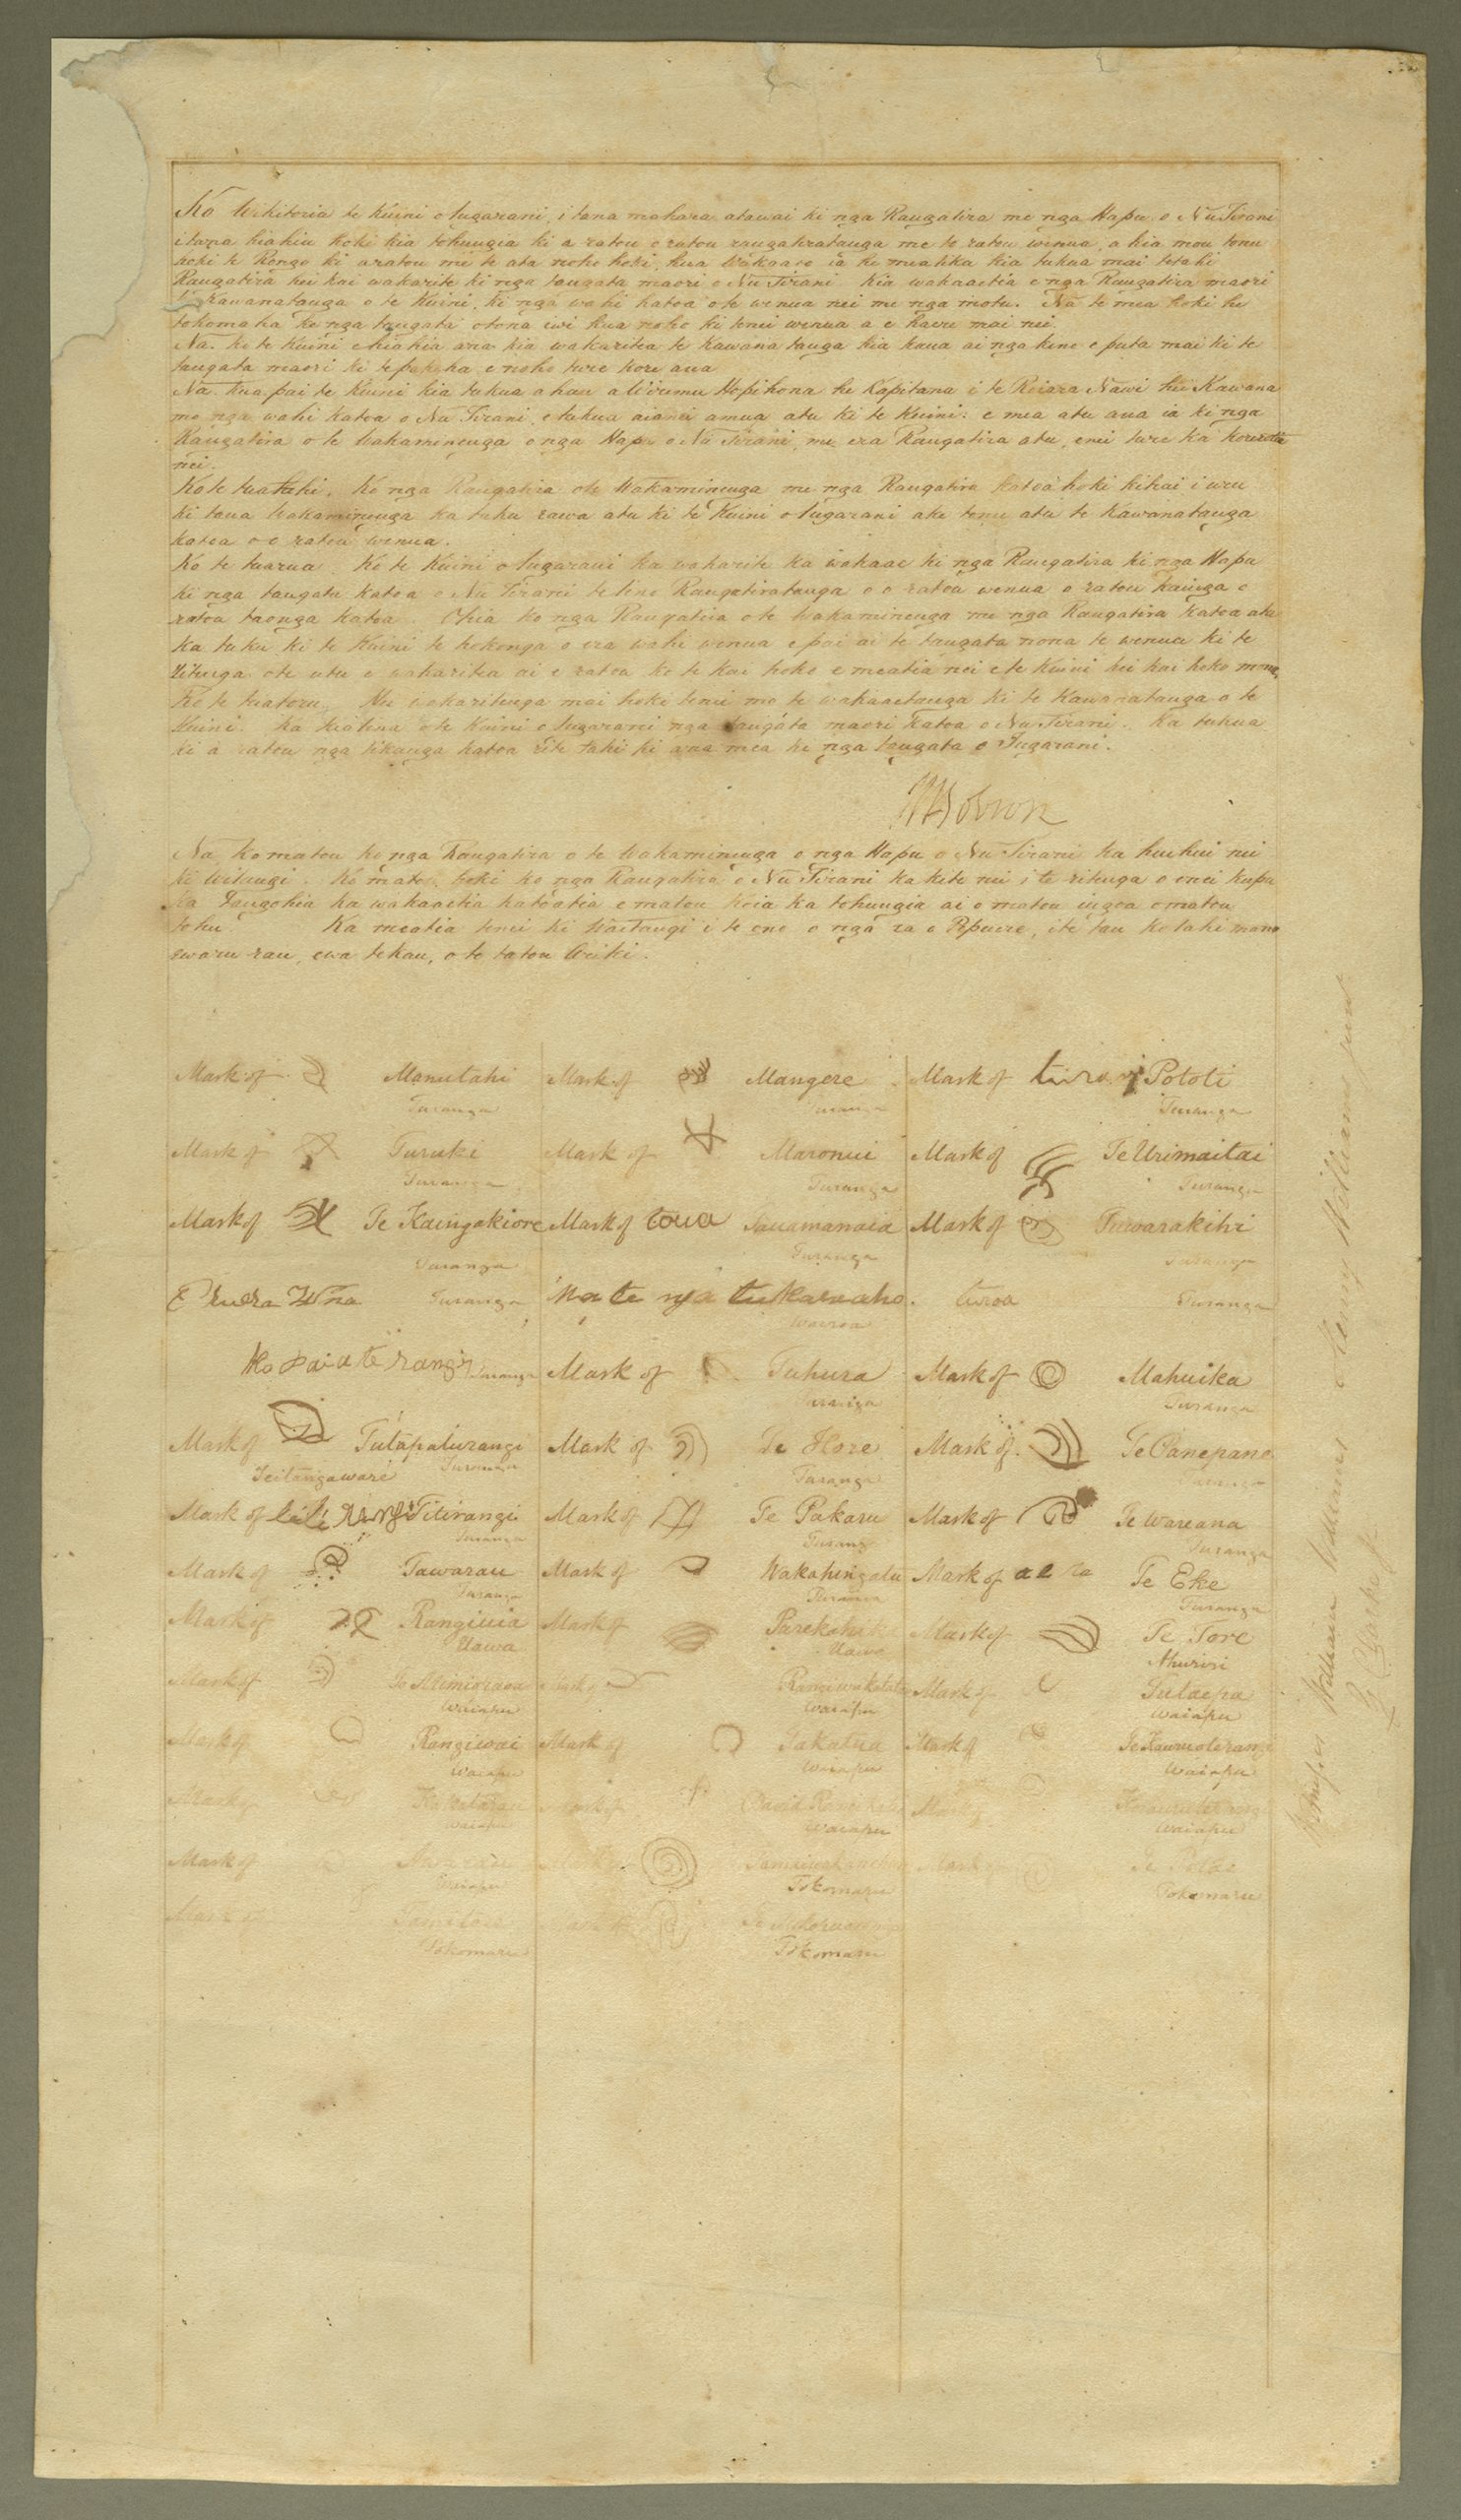 Ko Wikitoria te Kuini o Ingarani, i tana mahara atawai ki nga Rangatira me nga Hapu o Nu Tirani
i tana hiahia hoki kia tohungia ki a ratou o ratou rangatiratanga me to ratou wenua, a kia mou tonu
hoki te Rongo ki a ratou me te ata noho hoki, kua wakaaro ia he mea tika kia tukua mai tetahi
Rangatira hei kai wakarite ki nga tangata maori o Nu Tirani. Kia wakaaetia e nga Rangatira maori
te Kawanatanga o te Kuini, ki nga wahi katoa o te wenua nei me nga motu. Na te mea hoki he
tokomaha ke nga tangata o tona iwi kua noho ki tenei wenua a e haere mai nei.
Na. ko te Kuini e hiahia ana kia wakaritea te kawanatanga kia kaua ai nga kino e puta mai ki te
tangata maori ki te pakeha e noho ture kore ana
Na. kua pai te Kuini kia tukua a hau a Wiremu Hopihona he Kapitana i te Roiara Nawi hei Kawana
mo nga wahi katoa o Nu Tirani, e tukua aianei amua atu ki te Kuini: e mea atu ana ia ki nga
Rangatira o te Wakaminenga o nga Hapu o Nu Tirani, me era Rangatira atu, enei ture ka korerotia
nei.
Ko te tuatahi. Ko nga Rangatira o te Wakaminenga me nga Rangatira katoa hoki kihai i uru
ki taua Wakaminenga ka tuku rawa atu ki te Kuini o Ingarani ake tonu atu te kawanatanga
katoa o o ratou wenua.
Ko te tuarua. Ko te Kuini o Ingarani ka wakarite ka wakaae ki nga Rangatira ki nga Hapu
ki nga tangata katoa o Nu Tirani te tino Rangatiratanga o o ratou wenua o ratou kainga o
ratou taonga katoa. Otiia ko nga Rangatira o te Wakaminenga me nga Rangatira katoa atu
ka tuku ki te Kuini te hokonga o era wahi wenua e pai ai te tangata nona te wenua ki te
ritenga o te utu e wakaritea ai e ratou ko te kai hoko e meatia nei e te Kuini hei kai hoko mona
Ko te tuatoru. Hei wakaritenga mai hoki tenei mo te wakaaetanga ki te Kawanatanga o te
Kuini. Ka tiakina e te Kuini o Ingarani nga tangata maori katoa o Nu Tirani. Ka tukua
ki a ratou nga tikanga katoa rite tahi ki ana mea ki nga tangata o Ingarani.
W Hobson
Na, ko matou ko nga Rangatira o te Wakaminenga o nga Hapu o Nu Tirani ka huihui nei
ki Witungi. Ko matou hoki ko nga Rangatira o Nu Tirani ka kite nei i te ritenga o enei kupu
ka tangohia ka wakaaetia katoatia e matou koia ka tohungia ai o matou ingoa o matou
tohu. Ka meatia tenei ki Waitangi i te ono o nga ra o Pepuere, i te tau kotahi mano
ewaru rau, ewa tekau, o te tatou Ariki.
Mark of Manutahi Mark of Mangere Mark of turangi Pototi
Turanga Turanga Turanga
Mark of Turuki Mark of Maronui Mark of Te Urimaitai
Turanga Turanga Turanga
Mark of Te Kaingakiore Mark of toua Tauamanaia Mark of Tuwarakihi
Turanga Turanga Turanga
Eruera Wna Turanga tukaroaho. turoa Turanga
Wairoa
Ko paiaterangi Turanga Mark of Tuhura Mark of Mahuika
Turanga Turanga
Mark of Tutapaturangi Mark of Te Hore Mark of Te Panepane
Teitangaware Turanga Turanga Turanga
Mark of titi rangi Titirangi Mark of Te Pakaru Mark of Te Wareana
Turanga Turanga Turanga
Mark of Tawarau Mark of Wakahingatu Mark of Te Eke
Turanga Turanga Turanga
Mark of Rangiuia Mark of Parekahika Mark of Te Tore
Uawa Uawa Ahuriri
Mark of Te Mimiopaoa Mark of Rangiwakatatae Mark of Tutaepa
Waiapu Waiapu Waiapu
Mark of Rangiwai Mark of Takatua Mark of Te Kauruoterangi
Waiapu Waiapu Waiapu
Mark of Kakatarau Mark of David Mark of
Waiapu Waiapu Waiapu
Mark of Mark of Mark of Te Potae
Waiapu Tokomaru Tokomaru
Mark of Tamitere Mark of
Tokomaru Tokomaru
Witnesses William Williams Henry Williams junr
G Clarke jr